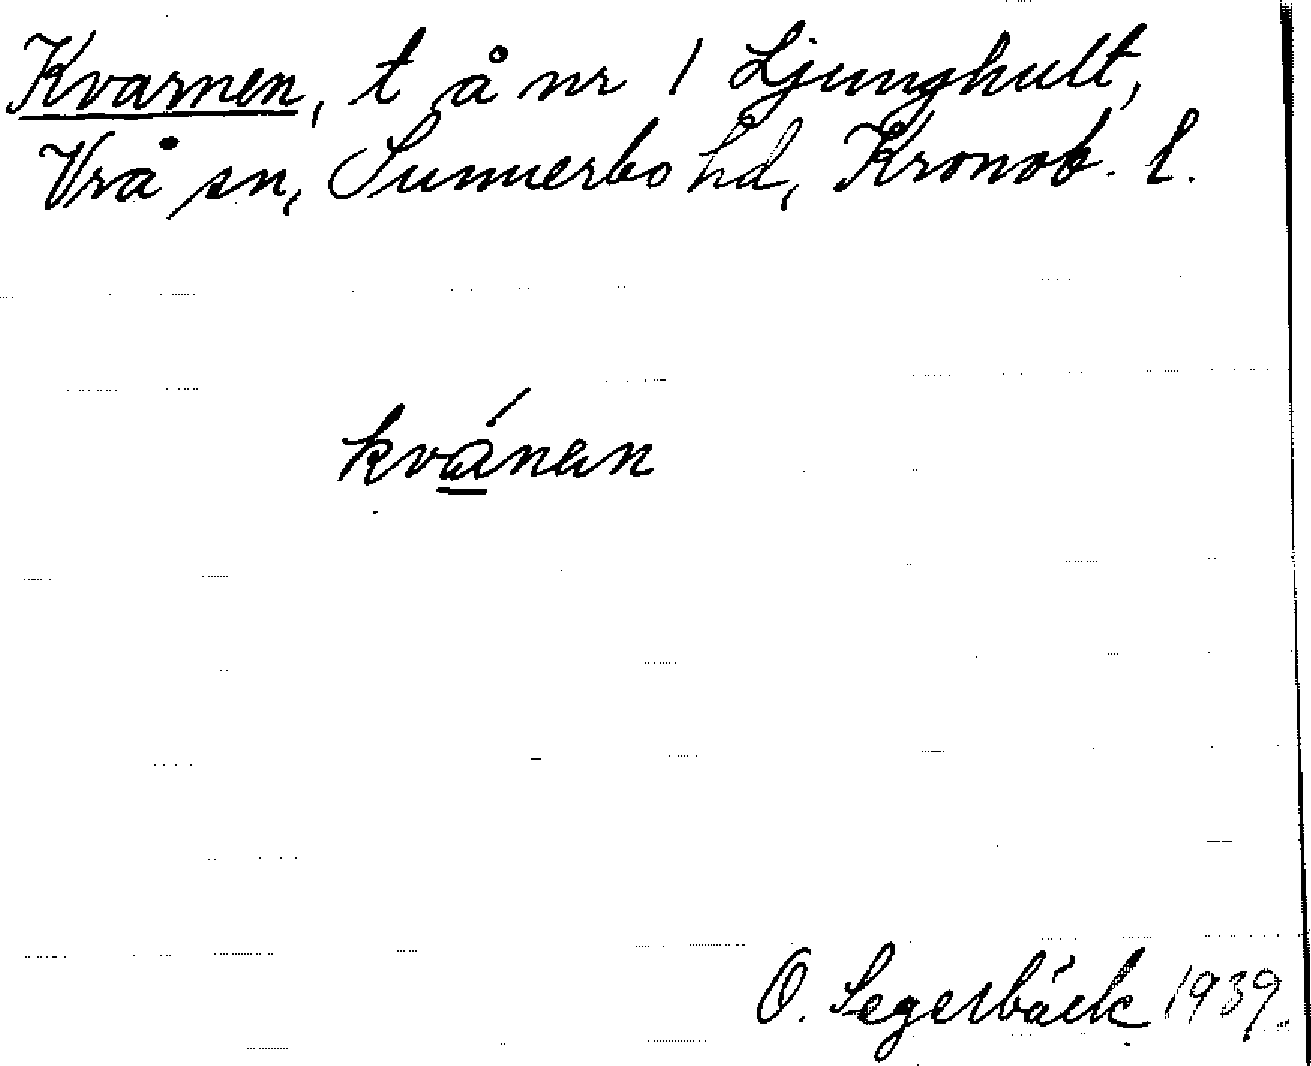 Kvarnen, t å nr 1 Ljunghult,
Vrå sn, Sunnerbo hd, Kronob. l.
kvánen
O. Segerbäck 1939.